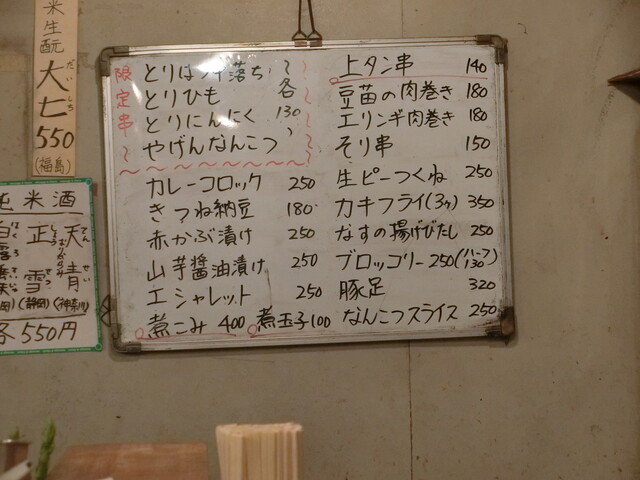 米生酛
大七
だいしち
550
(福島)
純米酒
天青
てんせい
(神奈川)
正雪
しょうせつ
(静岡)
各550円
限定串
とりはツイ落ち
とりひも
とりにんにく
やげんなんこつ
各130
カレーコロッケ 250
きつね納豆 180
赤かぶ漬け 250
山芋醤油漬け 250
エシャレット 250
煮こみ 400 煮玉子100
上タン串 140
豆苗の肉巻き 180
エリンギ肉巻き 180
そり串 150
生ピーつくね 250
カキフライ(3ヶ) 350
なすの揚げびたし 250
ブロッコリー 250(ハーフ130)
豚足 320
なんこつスライス 250